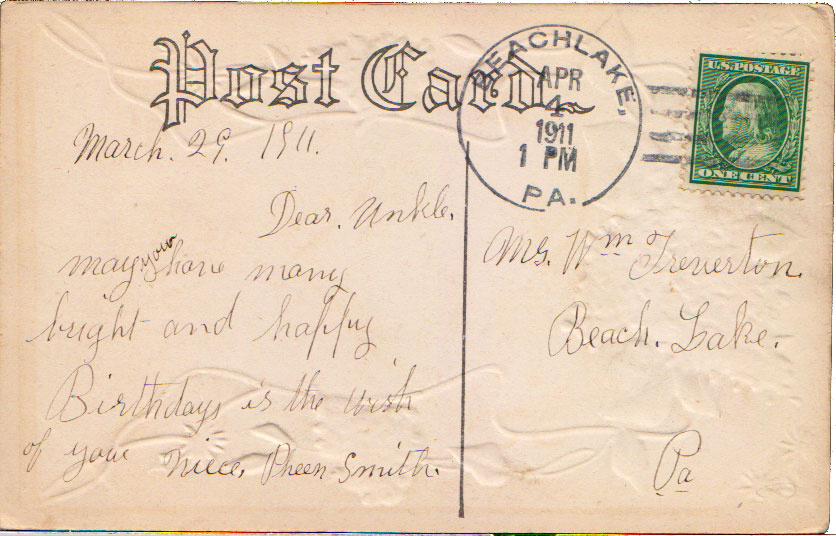 Post Card
BEACHLAKE,
APR
4
1911
1 PM
PA.
U.S. POSTAGE
ONE CENT
March. 29. 1911.
Dear. Unkle.
may your have many
bright and happy
Birthdays is the wish
of your niece. Pheen Smith.
Mr. Wm Treverton.
Beach. Lake.
Pa